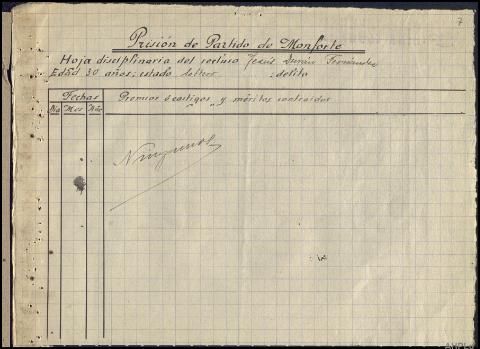 7
Prisión de Partido de Monforte
Hoja disciplinaria del recluso Jesús Durán Fernández
Edad 30 años; estado soltero ; delito
Fechas Premios ó castigos y méritos contraidos
Día Mes Año " "
Ningunos